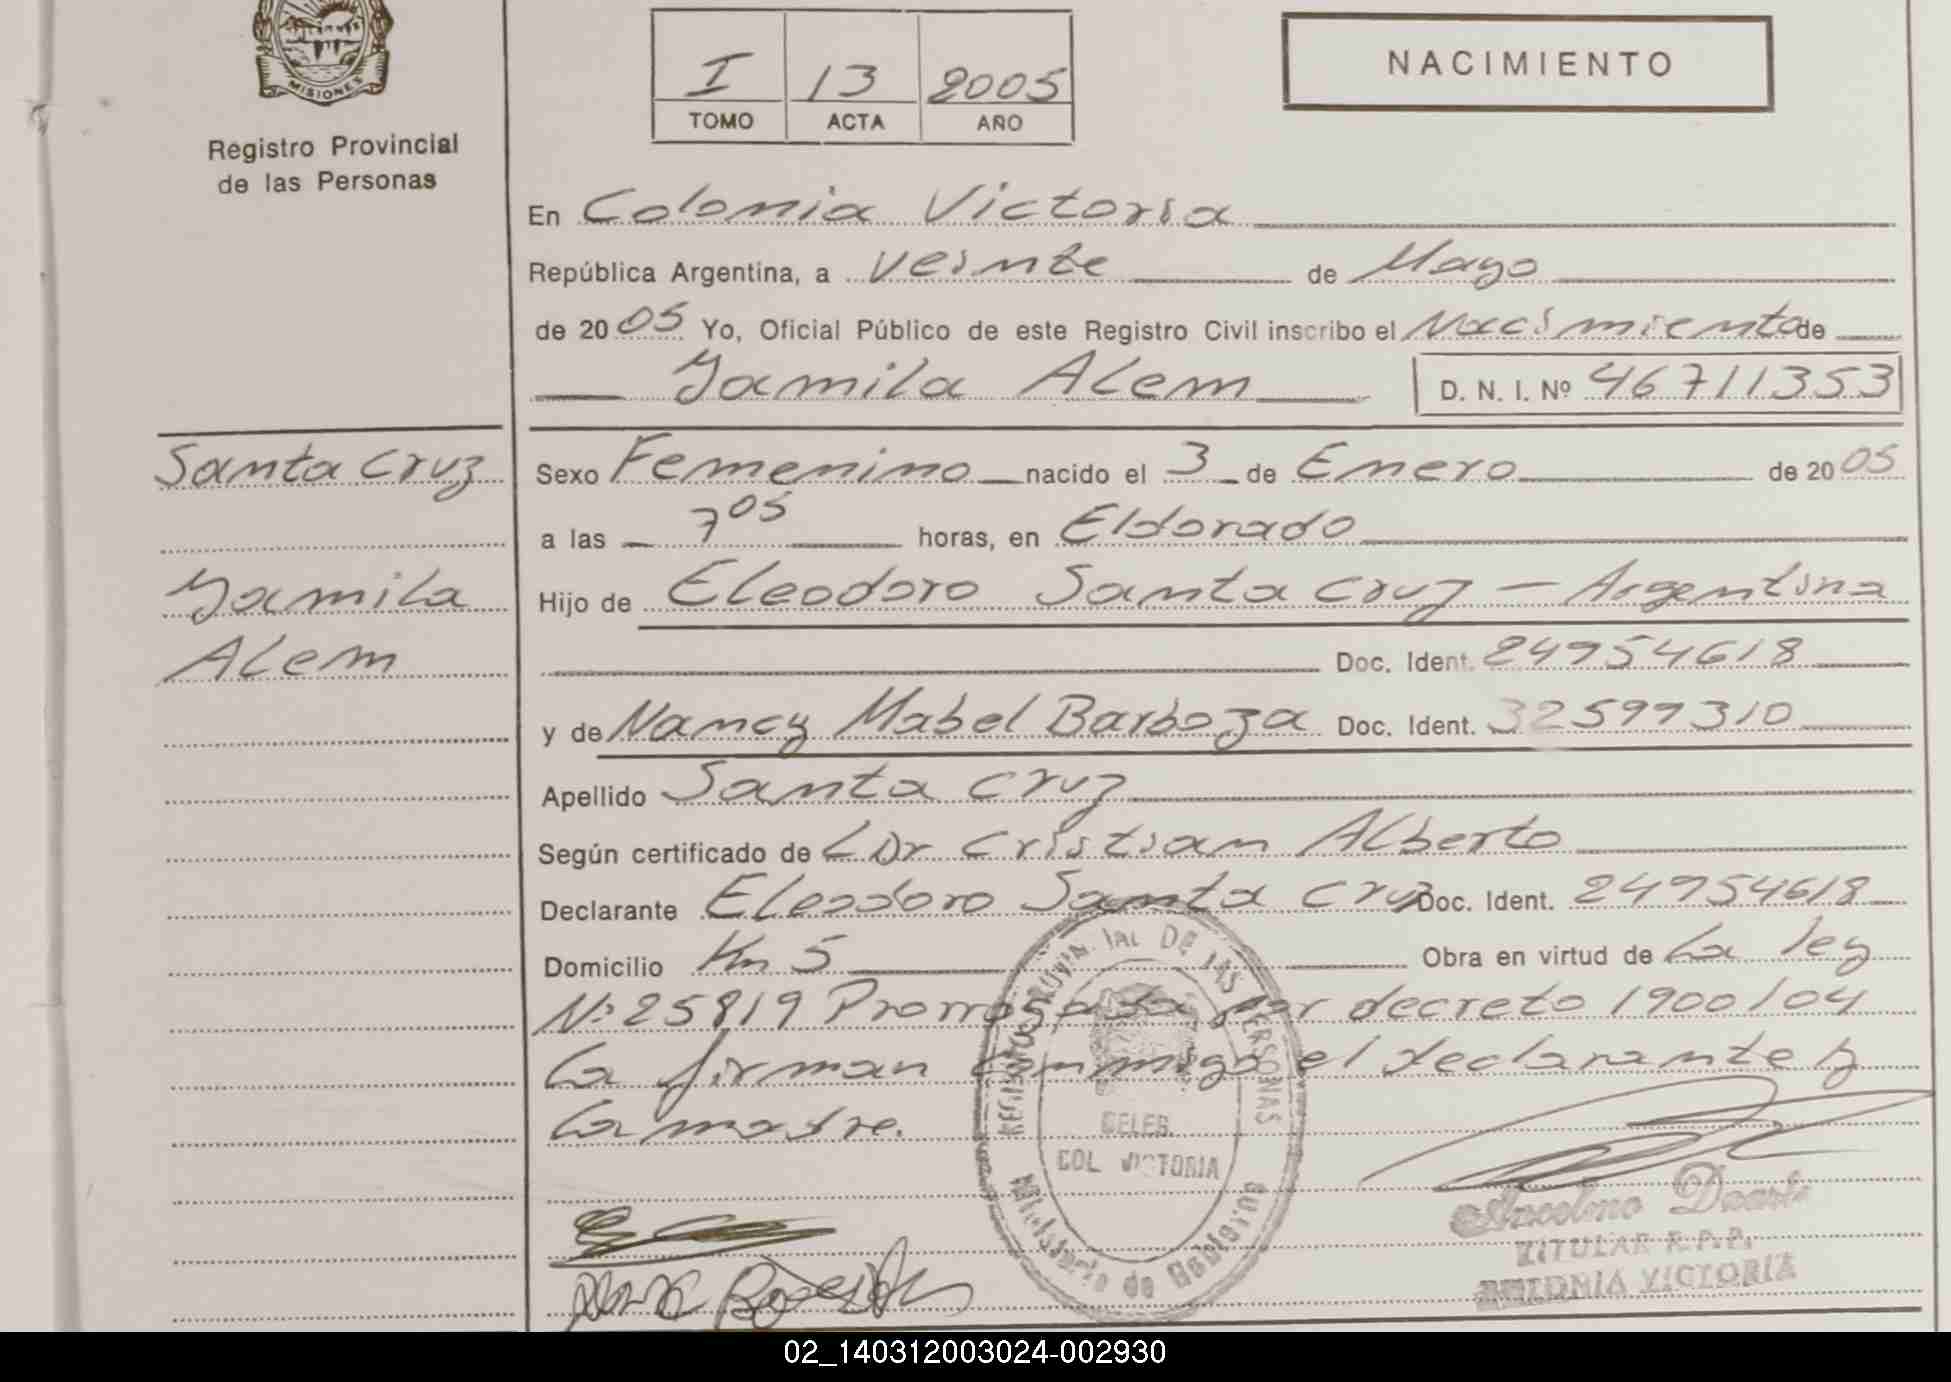 MISIONES
Registro Provincial
de las Personas
I 13 2005
TOMO ACTA AÑO
NACIMIENTO
En Colonia Victoria
República Argentina, a veinte de Mayo
de 2005 Yo, Oficial Público de este Registro Civil inscribo el Nacimiento de
Yamila Alem D. N. I. Nº 46711353
Santa Cruz
Yamila
Alem
Sexo Femenino nacido el 3 de Enero de 2005
a las 7 05 horas, en Eldorado
Hijo de Eleodoro Santa Cruz - Argentina
Doc. Ident. 24954618
y de Nancy Mabel Barboza Doc. Ident. 32599310
Apellido Santa Cruz
Según certificado de Dr Cristian Alberto
Declarante Eleodoro Santa Cruz Doc. Ident. 24954618
Domicilio Km 5 Obra en virtud de la ley
Nº 25819 Prorrogada por decreto 1900/04
La firman conmigo el declarante y
la madre.
REGISTRO PROVINCIAL DE LAS PERSONAS
DELEG.
COL VICTORIA
Ministerio de Gobierno
Anselmo Duarte
TITULAR R.P.P.
COLONIA VICTORIA
02_140312003024-002930